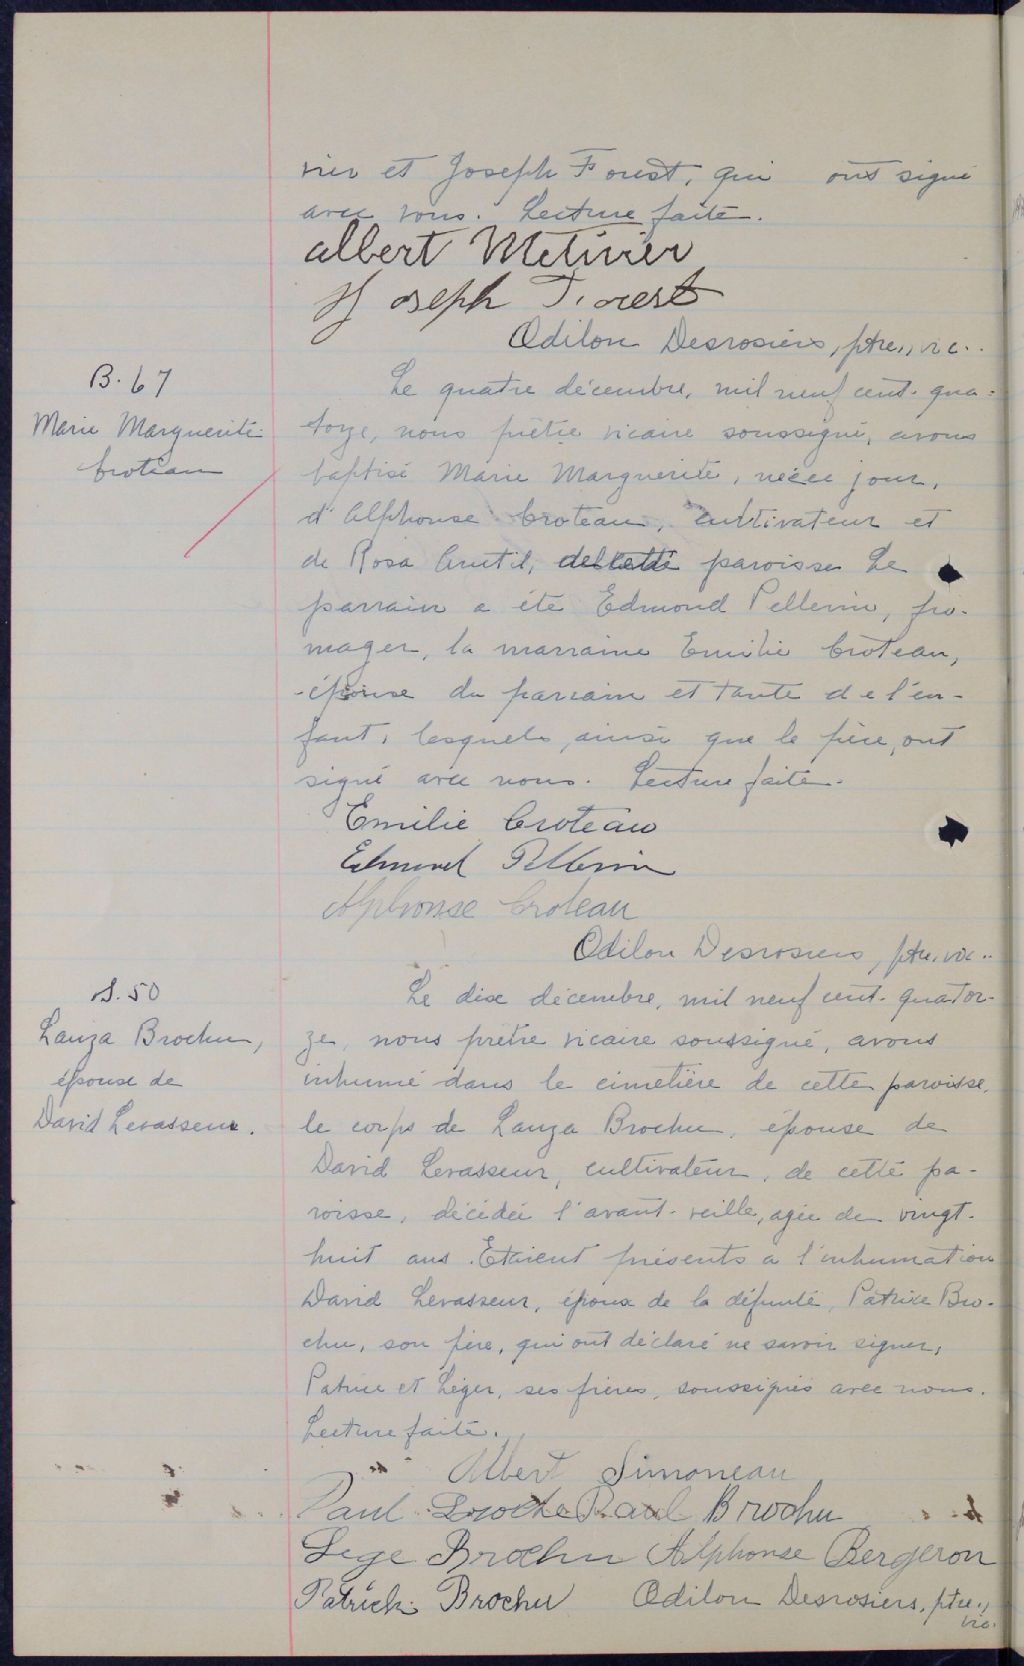 vier et Joseph Forest, qui ont signé
avec nous. Lecture faite.
Albert Metivier
Joseph Forest
Odilon Desrosiers, ptre., vic..
B. 67
Marie Marguerite
Croteau
Le quatre décembre, mil neuf cent-qua-
torze, nous prêtre vicaire soussigné, avons
baptisé Marie Marguerite, née ce jour,
d'Alphonse Croteau, cultivateur et
de Rosa Crutil, de cette paroisse Le
parrain a été Edmond Pellerin, fro-
mager, la marraine Emilie Croteau,
épouse du parrain et tante de l'en-
fant, lesquels, ainsi que le père, ont
signé avec nous. Lecture faite.
Emilie Croteau
Edmond Pellerin
Alphonse Croteau
Odilon Desrosiers, ptre. vic..
S. 50
Lauza Brochu,
épouse de
David Levasseur.
Le dix décembre, mil neuf cent-quator-
ze, nous prêtre vicaire soussigné, avons
inhumé dans le cimetière de cette paroisse,
le corps de Lauza Brochu, épouse de
David Levasseur, cultivateur, de cette pa-
roisse, décédée l'avant-veille, agée de vingt-
huit ans. Etaient présents a l'inhumation
David Levasseur, époux de la défunte, Patrice Bro-
chu, son père, qui ont déclaré ne savoir signer,
Patrice et Léger, ses frères, soussignés avec nous.
Lecture faite.
Albert Simoneau
Paul Raul Brochu
Lege Brochu Alphonse Bergeron
Patrick Brochu Odilon Desrosiers, ptre.,
vic.